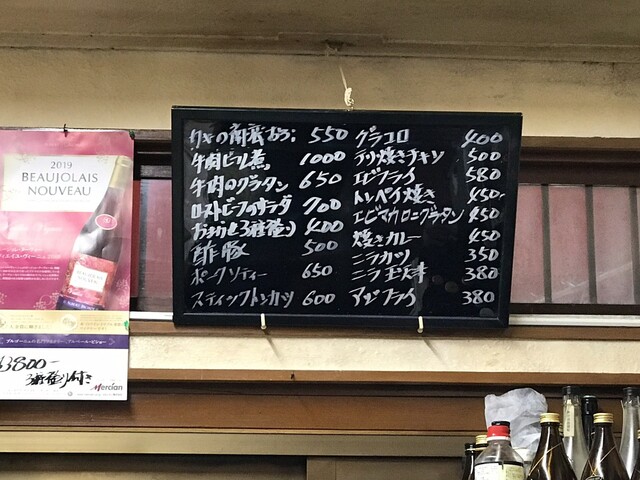 2019
BEAUJOLAIS
NOUVEAU
3800-
3種盛り付き
Mercian
カキの南蛮おろし 550
牛肉ビール煮 1000
牛肉のグラタン 650
ローストビーフのサラダ 700
おまかせ3種盛り 400
酢豚 500
ポークソティー 650
スティックトンカツ 600
グラコロ 400
テリ焼きチキン 500
エビフライ 580
トンペイ焼き 450
エビマカロニグラタン 450
焼きカレー 450
ニラカツ 350
ニラ玉焼き 380
アジフライ 380